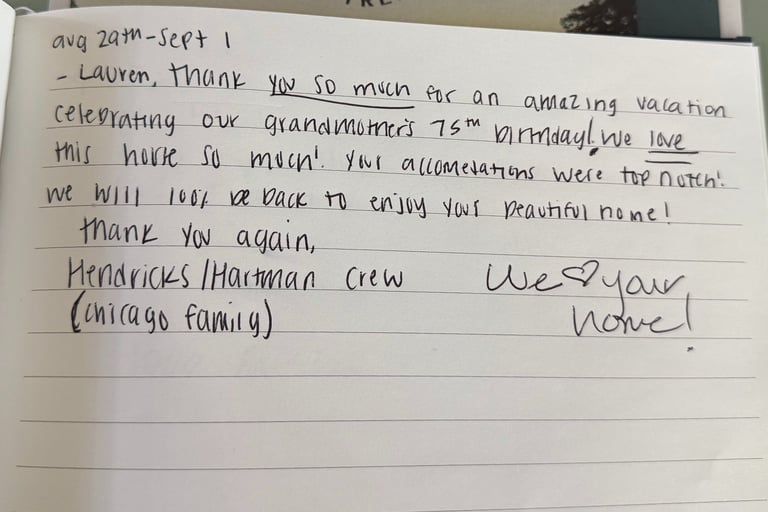 aug 29th-Sept 1
- Lauren, thank you so much for an amazing vacation
celebrating our grandmother's 75th birthday! We love
this house so much! Your accomodations were top notch!
we will 100% be back to enjoy your beautiful home!
Thank you again,
Hendricks/Hartman crew
(Chicago family)
We ♡ your
home!